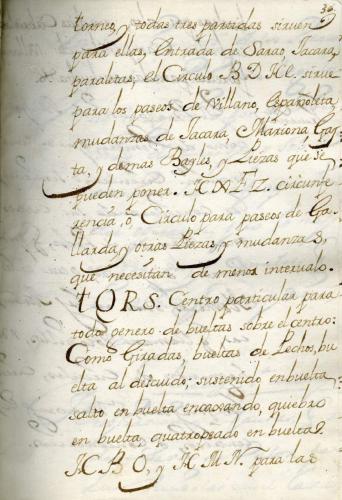 36
torneo, y todas tres partidas siruen
para ellas, Entrada de Sarao, Jacara,
paraletas, el Circulo B D H L. sirue
para los paseos de Villano, Españoleta
mudanzas de Jacara, Mariona, Gay
ta, y demas Bayles, y Piezas que se
pueden poner. X Z. circunfe
rencia, ô, Circulo para paseos de Ga
llarda y otras Piezas, y mudanzas,
que necesitan de menor intervalo.
t Q R S. Centro particular para
todo genero de bueltas sobre el centro:
Como Giradas, bueltas de Pechos, bu
elta al descuido; sustenido en buelta
salto en buelta encaxando, quiebro
en buelta, quatropeado en buelta
B O, y M N. para las